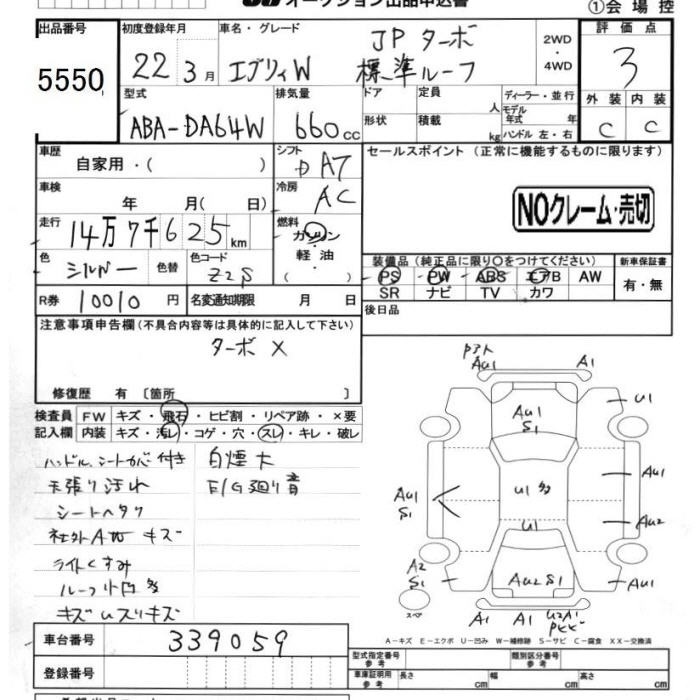 オークション出品申込書
①会場控
出品番号 初度登録年月 車名・グレード 評価点
5550
22 3月 エブリィW JPターボ 標準ルーフ 2WD・4WD 3
型式 排気量 ドア 定員 人 ディーラー・並行 外装 内装
形状 積載 kg モデル年式 年 ハンドル 左・右
ABA-DA64W 660cc C C
車歴 自家用・( ) シフト F AT セールスポイント (正常に機能するものに限ります)
車検 年 月( 日) 冷房 AC
NOクレーム・売切
走行 14万7千625km 燃料 ガソリン・軽油・( )
色 シルバー 色替 色コード Z2S
装備品 (純正品に限り○をつけてください) 新車保証書
PS PW ABS エアB AW 有・無
SR ナビ TV カワ
R券 10010円 名変通知期限 月 日
後日品
注意事項申告欄 (不具合内容等は具体的に記入して下さい)
ターボ X
修復歴 有 〔箇所 〕
検査員 FW キズ・飛石・ヒビ割・リペア跡・×要
記入欄 内装 キズ・汚レ・コゲ・穴・スレ・キレ・破レ
ハンドル、シートカバー付き 白煙大
天張り汚れ E/G廻り音
シートヘタリ
社外AW キズ
ライトくすみ
ルーフ小凹多
キズUスリキズ
AU1 A1
AU1 S1 U1
U1多 AU1
AU1 S1 AU2
U1
A2 S1 AU2 S1 AU1
スペア
A1 A1 U2A1
A-キズ E-エクボ U-凹み W-補修跡 S-サビ C-腐食 XX-交換済
車台番号 339059
登録番号
型式指定番号 参考 類別区分番号 参考
車庫証明用 参考 長さ cm 幅 cm 高さ cm